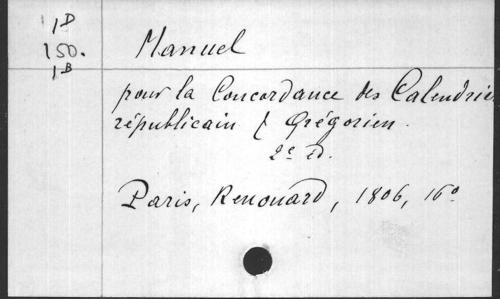 1D
150.
1B
Manuel
pour la Concordance des Calendrie
républicain & Grégorien.
2e éd.
Paris, Renouard, 1806, 16o